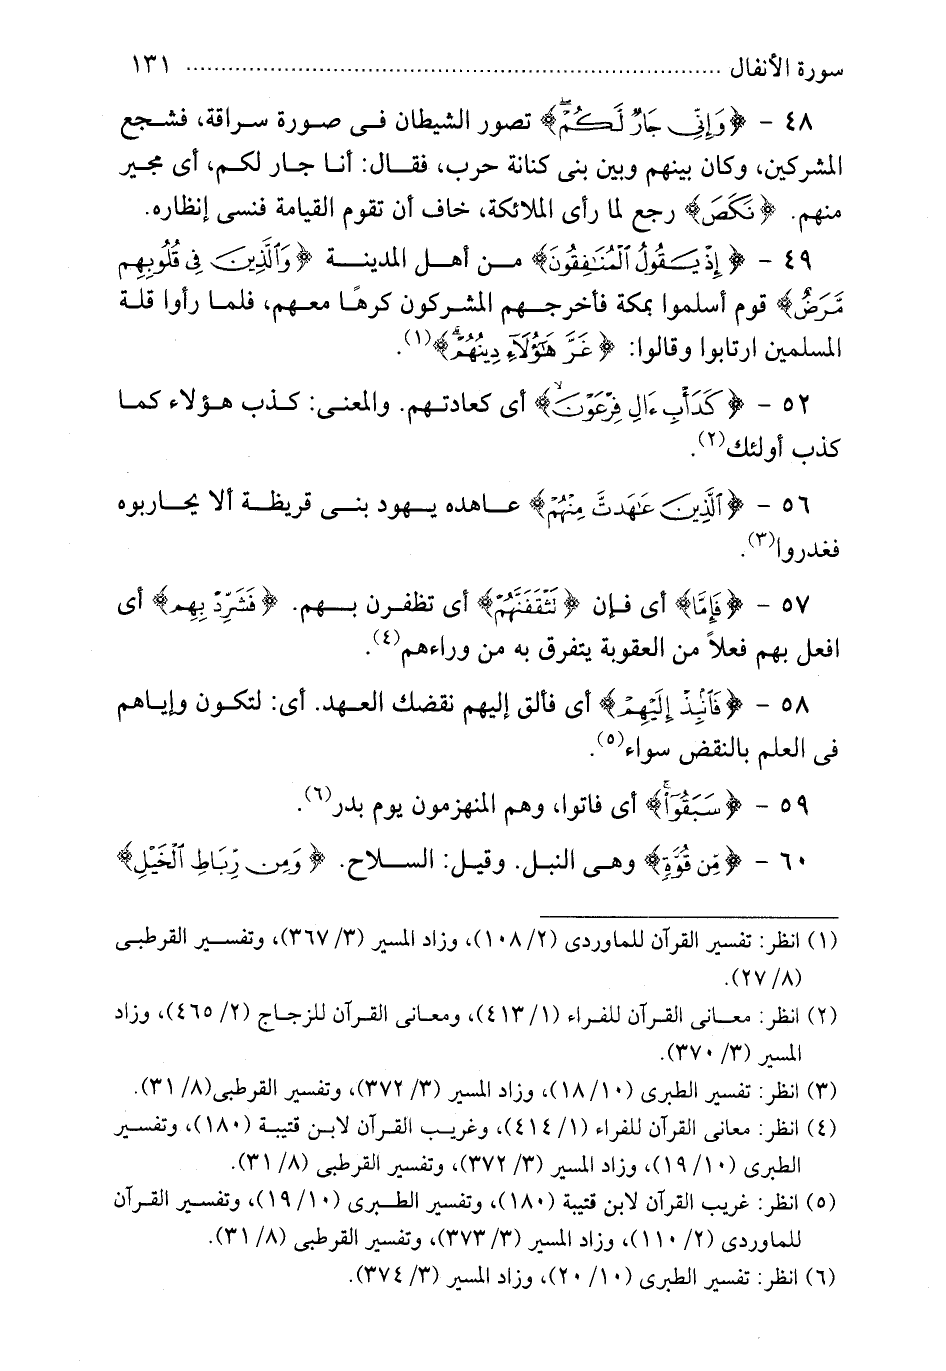 سورة الأنفال ........................................................................ ١٣١
٤٨ - ﴿وَإِنِّي جَارٌ لَّكُمْ﴾ تصور الشيطان فى صورة سراقة، فشجع
المشركين، وكان بينهم وبين بنى كنانة حرب، فقال: أنا جار لكم، أى مجير
منهم. ﴿نَكَصَ﴾ رجع لما رأى الملائكة، خاف أن تقوم القيامة فنسى إنظاره.
٤٩ - ﴿إِذْ يَقُولُ ٱلْمُنَٰفِقُونَ﴾ من أهل المدينة ﴿وَٱلَّذِينَ فِى قُلُوبِهِم
مَّرَضٌ﴾ قوم أسلموا بمكة فأخرجهم المشركون كرهًا معهم، فلما رأوا قلة
المسلمين ارتابوا وقالوا: ﴿غَرَّ هَٰٓؤُلَآءِ دِينُهُمْ﴾(١).
٥٢ - ﴿كَدَأْبِ ءَالِ فِرْعَوْنَ﴾ أى كعادتهم. والمعنى: كذب هؤلاء كما
كذب أولئك(٢).
٥٦ - ﴿ٱلَّذِينَ عَٰهَدتَّ مِنْهُمْ﴾ عاهده يهود بنى قريظة ألا يحاربوه
فغدروا(٣).
٥٧ - ﴿فَإِمَّا﴾ أى فإن ﴿تَثْقَفَنَّهُمْ﴾ أى تظفرن بهم. ﴿فَشَرِّدْ بِهِم﴾ أى
افعل بهم فعلاً من العقوبة يتفرق به من وراءهم(٤).
٥٨ - ﴿فَٱنۢبِذْ إِلَيْهِمْ﴾ أى فألق إليهم نقضك العهد. أى: لتكون وإياهم
فى العلم بالنقض سواء(٥).
٥٩ - ﴿سَبَقُوٓا۟﴾ أى فاتوا، وهم المنهزمون يوم بدر(٦).
٦٠ - ﴿مِّن قُوَّةٍ﴾ وهى النبل. وقيل: السلاح. ﴿وَمِن رِّبَاطِ ٱلْخَيْلِ﴾
(١) انظر: تفسير القرآن للماوردى (٢/ ١٠٨)، وزاد المسير (٣/ ٣٦٧)، وتفسير القرطبى
(٨/ ٢٧).
(٢) انظر: معانى القرآن للفراء (١/ ٤١٣)، ومعانى القرآن للزجاج (٢/ ٤٦٥)، وزاد
المسير (٣/ ٣٧٠).
(٣) انظر: تفسير الطبرى (١٠/ ١٨)، وزاد المسير (٣/ ٣٧٢)، وتفسير القرطبى(٨/ ٣١).
(٤) انظر: معانى القرآن للفراء (١/ ٤١٤)، وغريب القرآن لابن قتيبة (١٨٠)، وتفسير
الطبرى (١٠/ ١٩)، وزاد المسير (٣/ ٣٧٢)، وتفسير القرطبى (٨/ ٣١).
(٥) انظر: غريب القرآن لابن قتيبة (١٨٠)، وتفسير الطبرى (١٠/ ١٩)، وتفسير القرآن
للماوردى (٢/ ١١٠)، وزاد المسير (٣/ ٣٧٣)، وتفسير القرطبى (٨/ ٣١).
(٦) انظر: تفسير الطبرى (١٠/ ٢٠)، وزاد المسير (٣/ ٣٧٤).